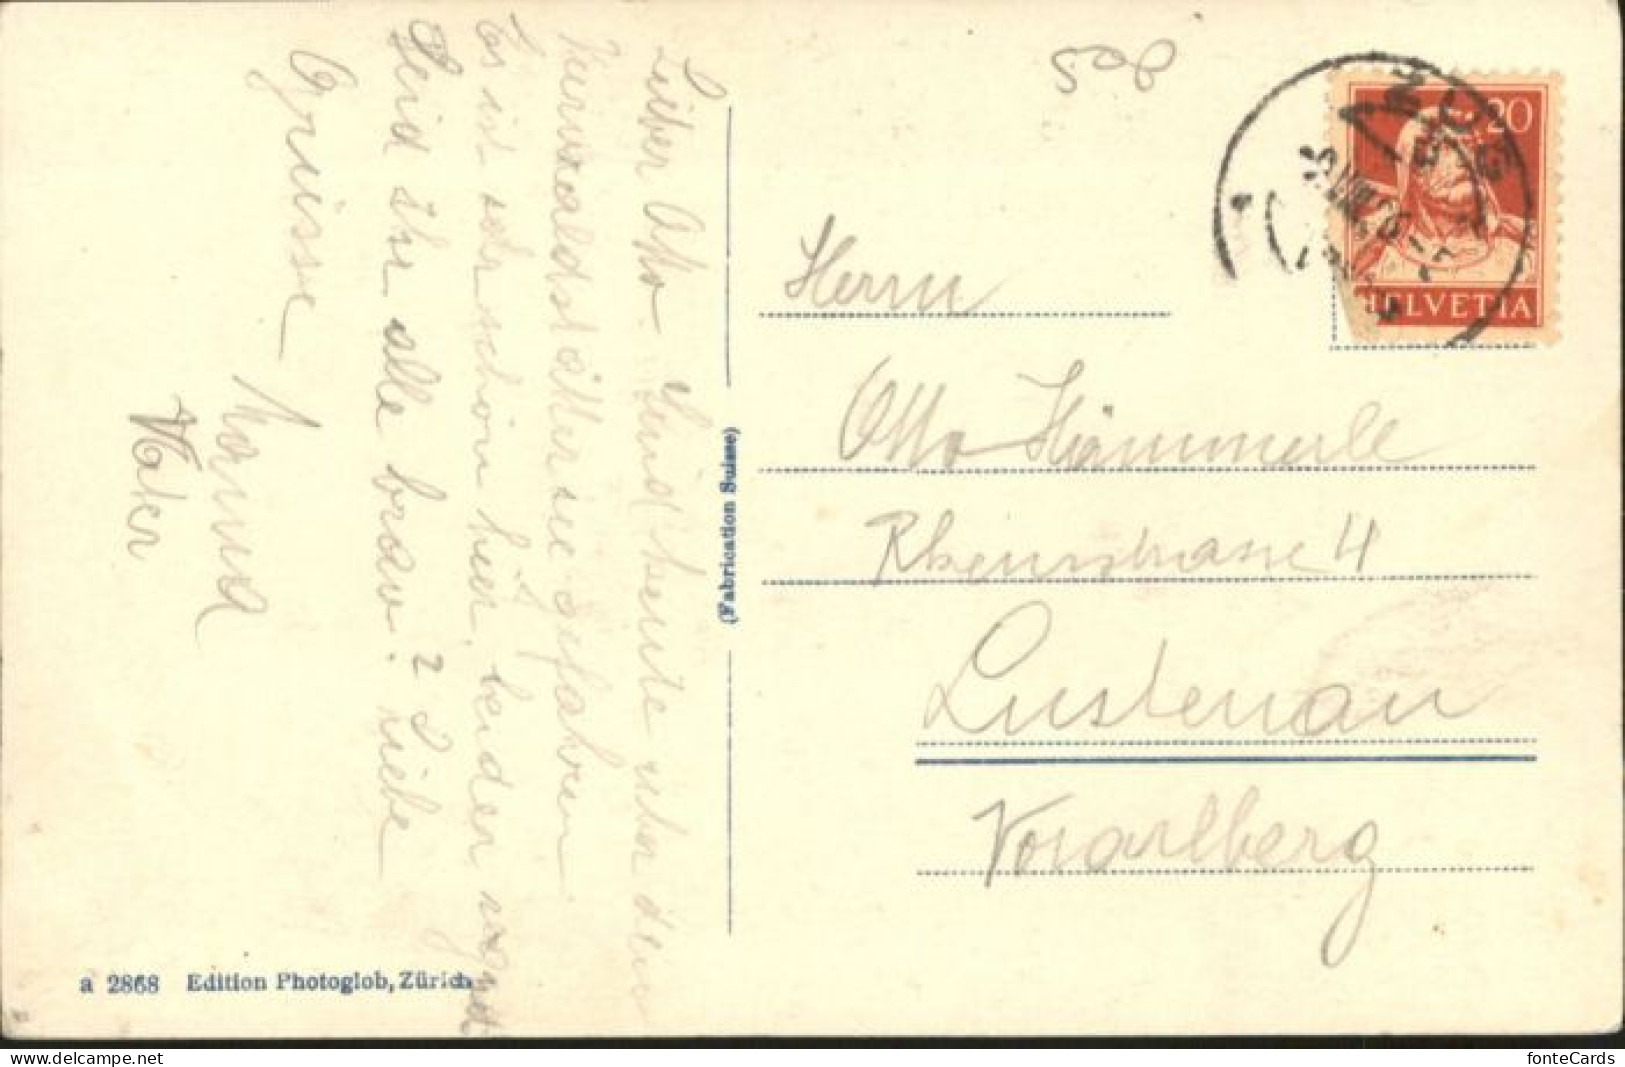 Lieber Otto. Sind heute über den
Vierwaldstättersee gefahren
Es ist sehr schön hier, leider regnet
Seid ihr alle brav? Liebe
Grüsse
Mama
Vater
Herrn
Otto Hämmerle
Rheinstrasse 4
Lustenau
Vorarlberg
20
HELVETIA
(Fabrication Suisse)
a 2868 Edition Photoglob, Zürich
www.delcampe.net
fonteCards